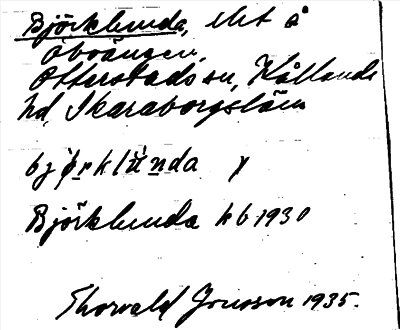 Björklunda, lht å
Öboängen,
Otterstads sn, Kållands
hd, Skaraborgs län
björklùnda
Björklunda kb 1930
Thorvald Jonsson 1935.